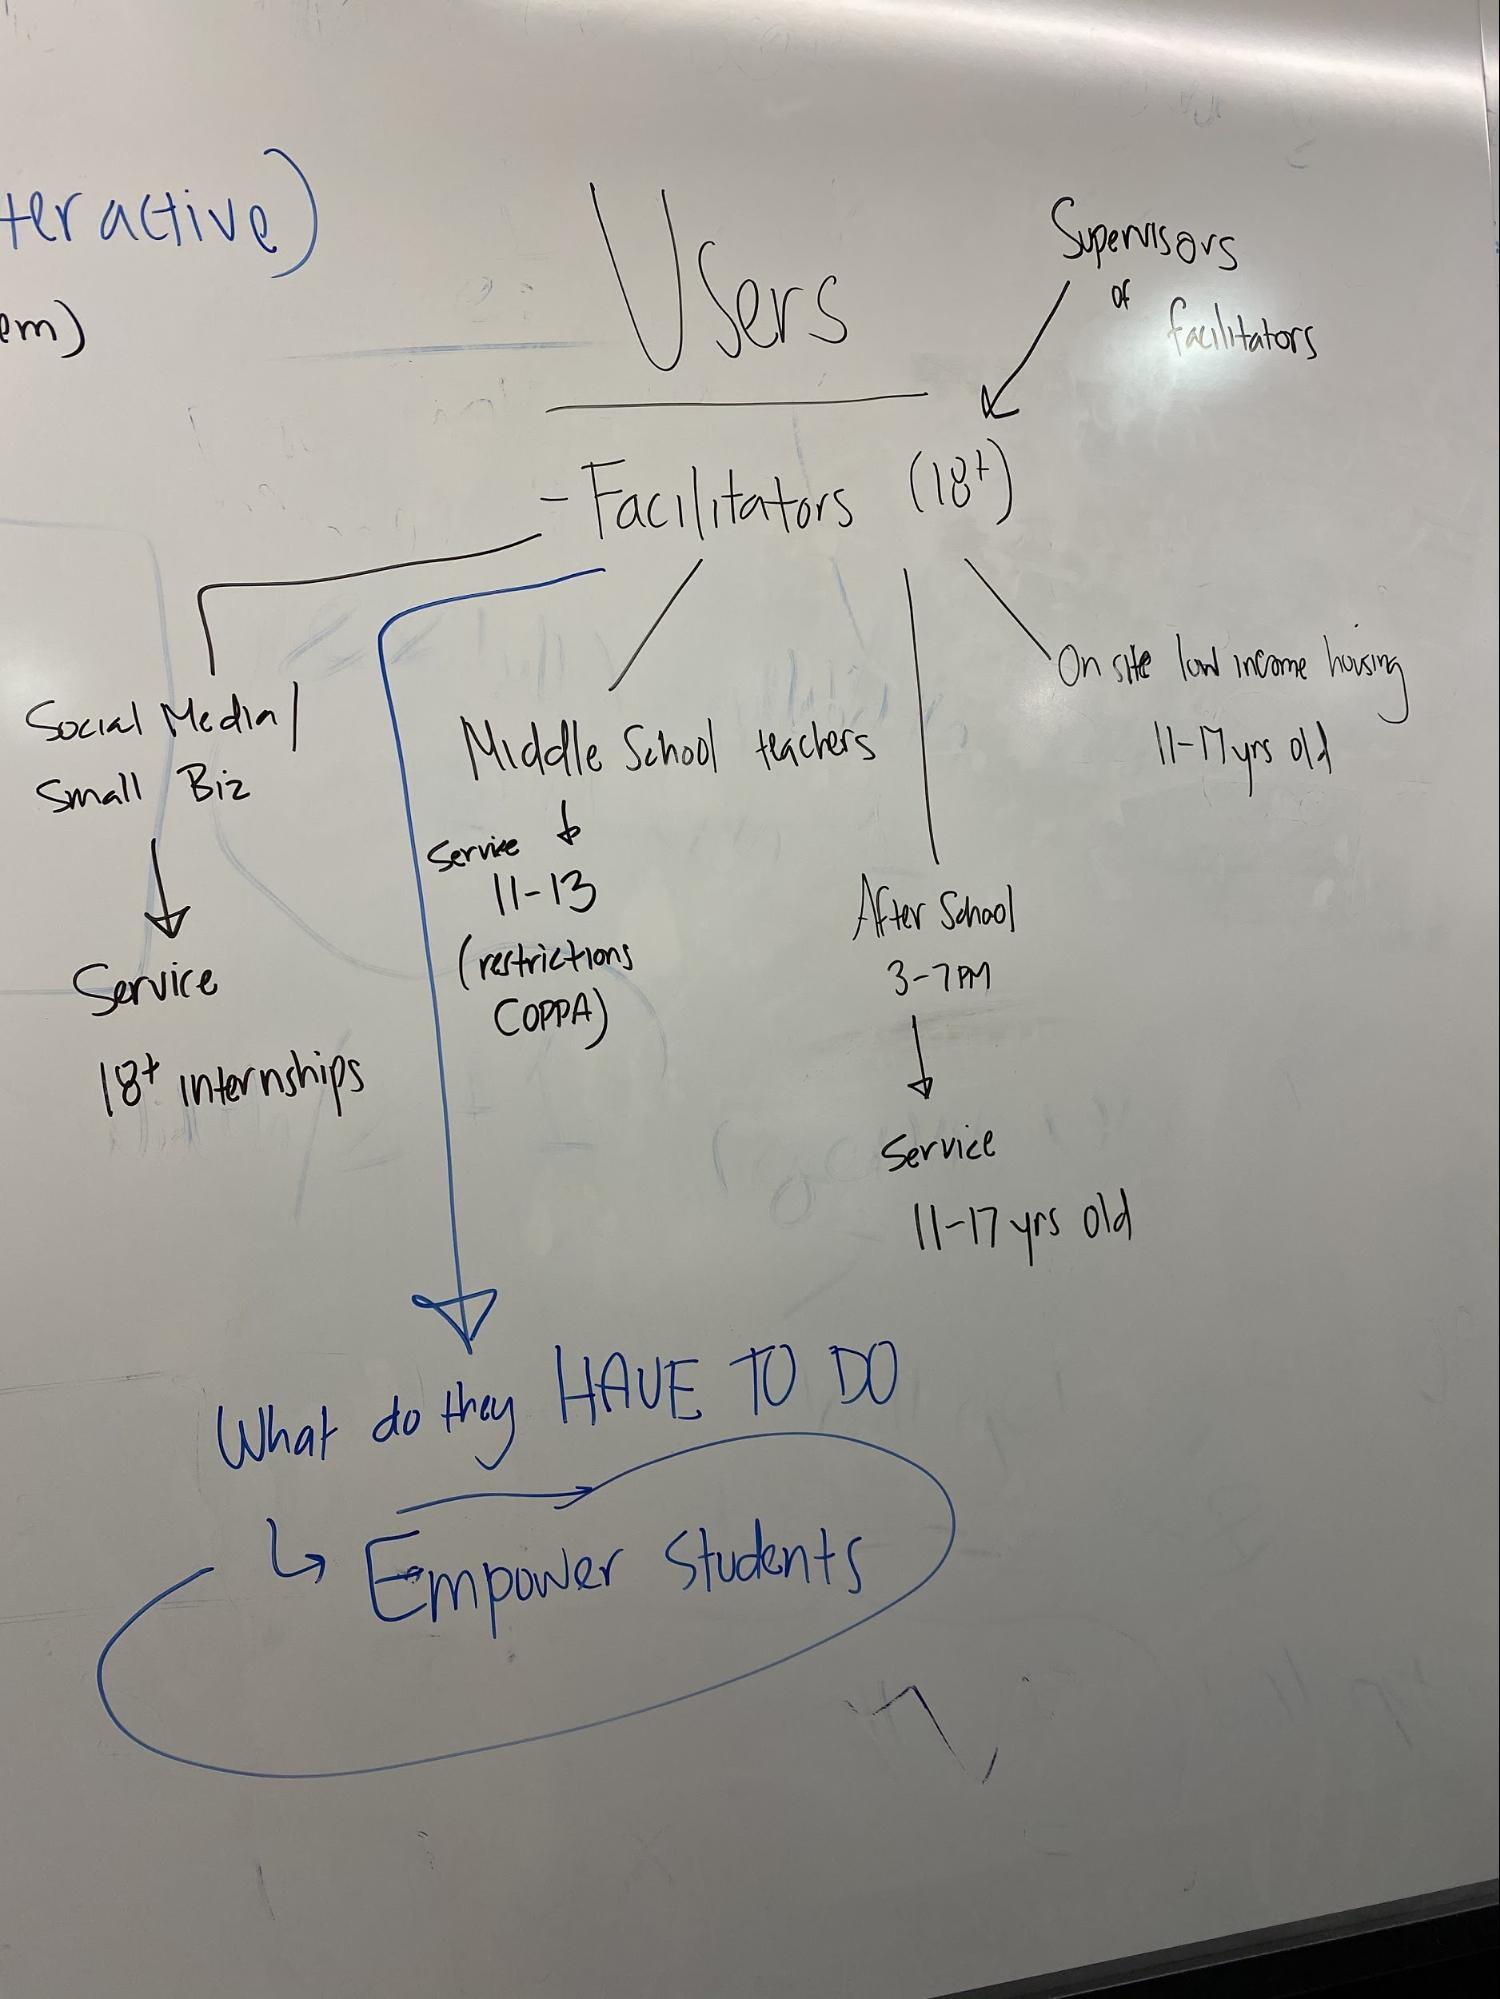 teractive)
em)
Users
Supervisors
of
facilitators
- Facilitators (18+)
Social Media/
Small Biz
Service
18+ internships
Middle School teachers
Service
11-13
(restrictions
COPPA)
After School
3-7PM
Service
11-17 yrs old
On site low income housing
11-17 yrs old
What do they HAVE TO DO
Empower Students